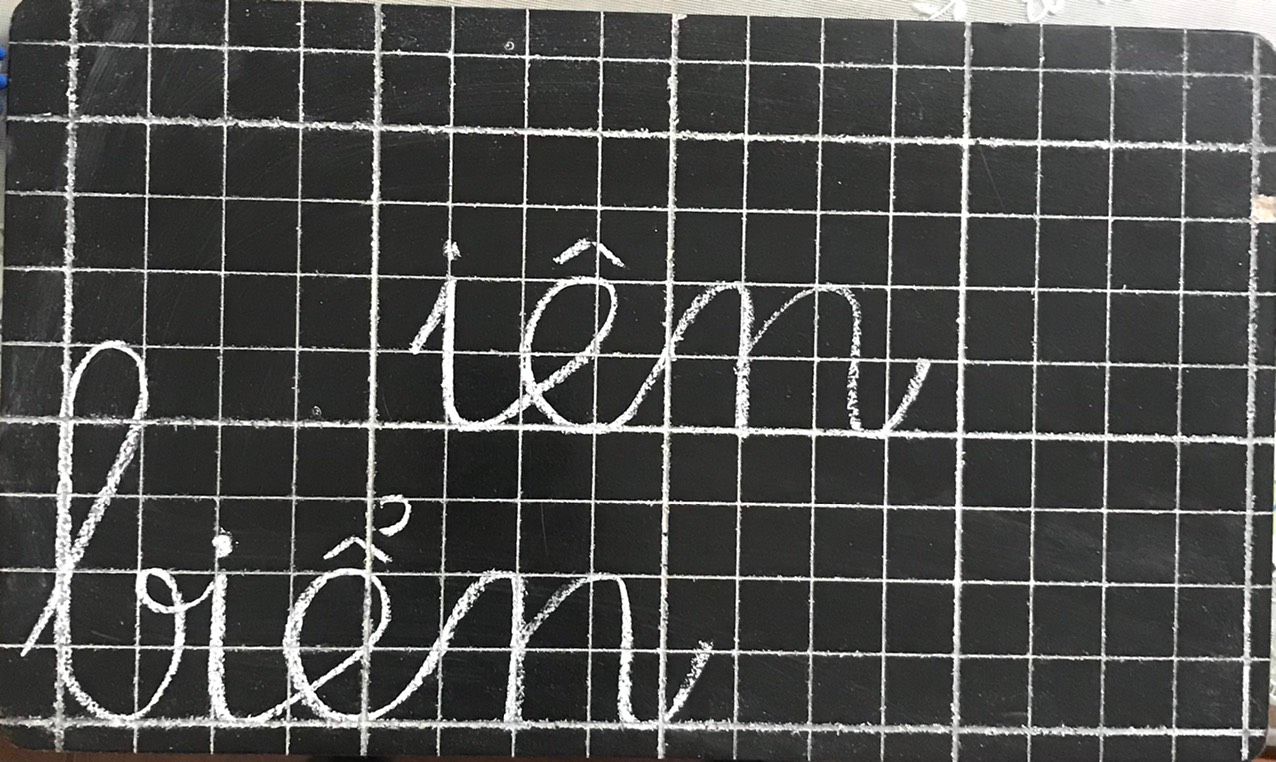 iên
biển